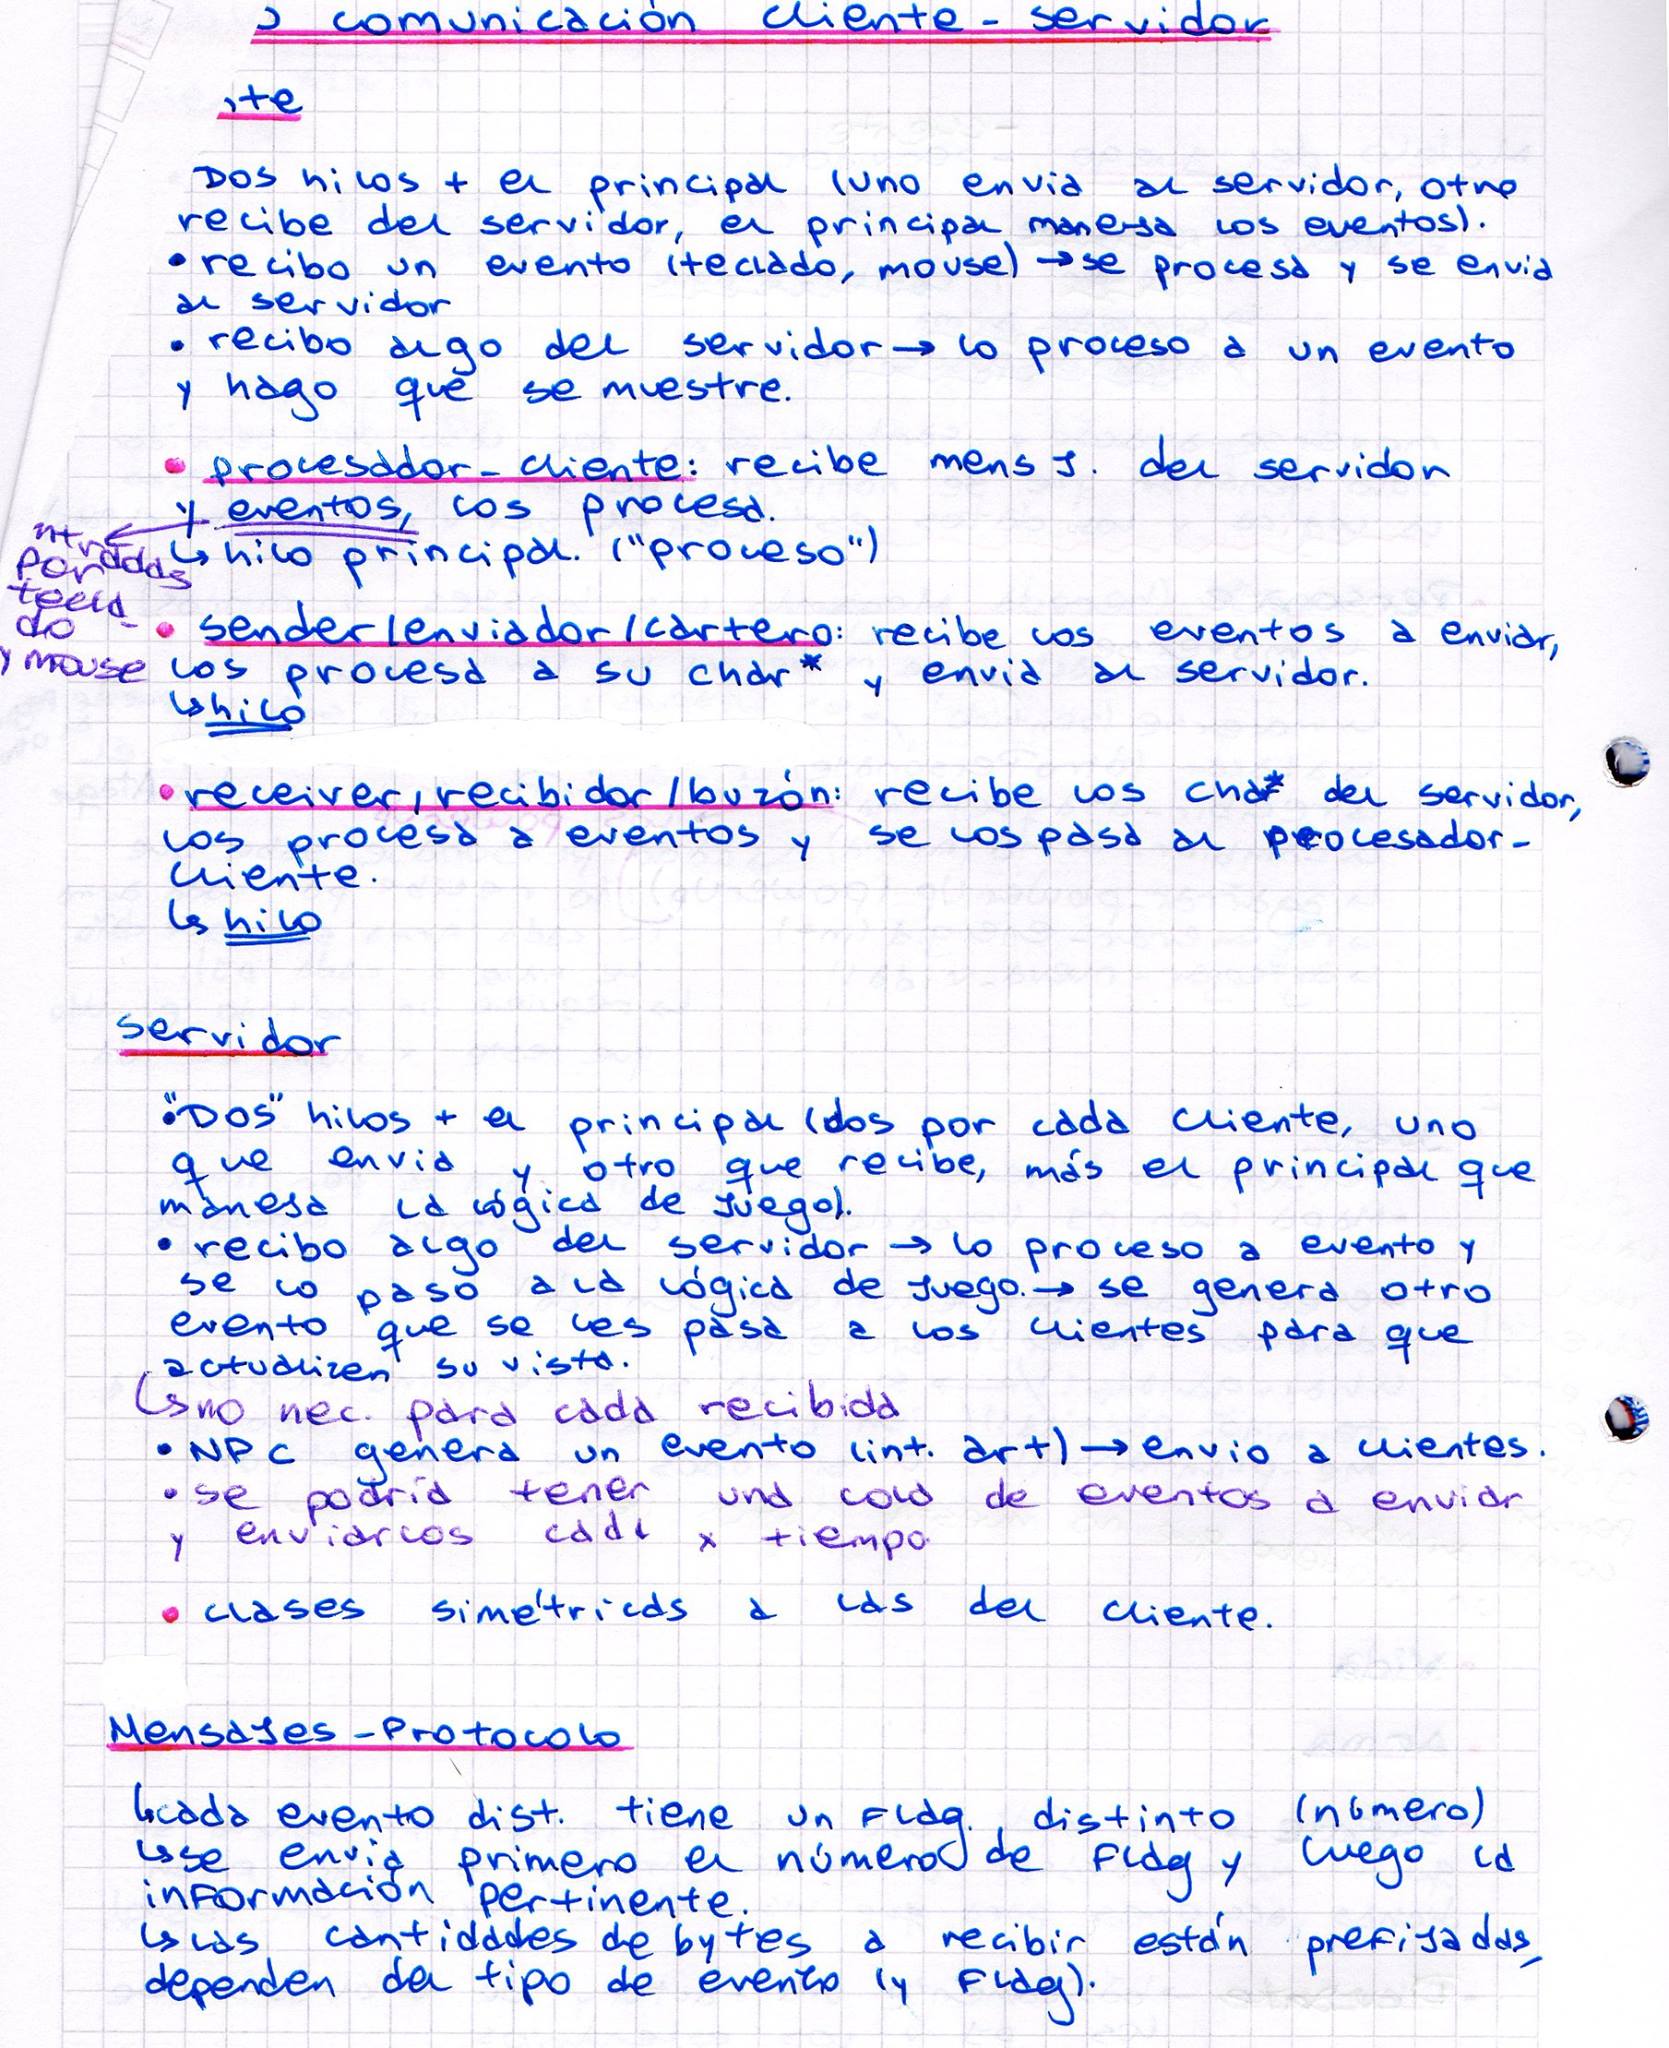 comunicación cliente - servidor
te
Dos hilos + el principal (uno envia al servidor, otro
recibe del servidor, el principal maneja los eventos).
• recibo un evento (teclado, mouse) → se procesa y se envia
al servidor
• recibo algo del servidor → lo proceso a un evento
y hago que se muestre.
• procesador-cliente: recibe mens J. del servidor
y eventos, los procesa.
↳ hilo principal. ("proceso")
ntradas
por
tecla
do -
y mouse
• sender/enviador/cartero: recibe los eventos a enviar,
los procesa a su char* y envia al servidor.
↳ hilo
• receiver/recibidor/buzón: recibe los char* del servidor,
los procesa a eventos y se los pasa al procesador-
cliente.
↳ hilo
servidor
• "Dos" hilos + el principal (dos por cada cliente, uno
que envia y otro que recibe, más el principal que
maneja la lógica de juego).
• recibo algo del servidor → lo proceso a evento y
se lo paso a la lógica de juego. → se genera otro
evento que se les pasa a los clientes para que
actualizen su vista.
↳ no nec. para cada recibida
• NPC genera un evento (int. art) → envio a clientes.
• se podría tener una cola de eventos a enviar
y enviarlos cada x tiempo
• clases simétricas a las del cliente.
Mensajes - Protocolo
↳ cada evento dist. tiene un Flag. distinto (número)
↳ se envia primero el número de Flag y luego la
información pertinente.
↳ las cantidades de bytes a recibir están prefijadas,
dependen del tipo de evento (y Flag).